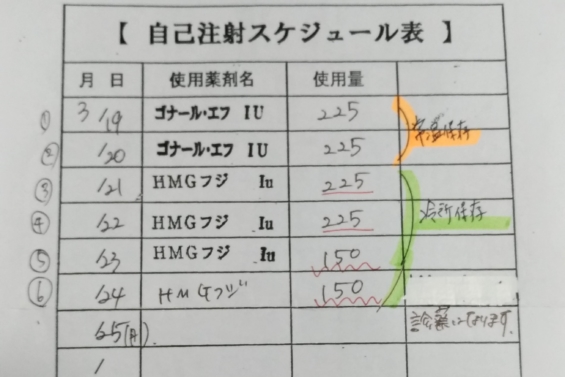 【 自己注射スケジュール表 】
月 日 使用薬剤名 使用量
① 3/19 ゴナール・エフ IU 225
② /20 ゴナール・エフ IU 225 常温保存
③ /21 HMGフジ Iu 225
④ /22 HMGフジ Iu 225 冷所保存
⑤ /23 HMGフジ Iu 150
⑥ /24 HMGフジ 150
25(月) になります。
/